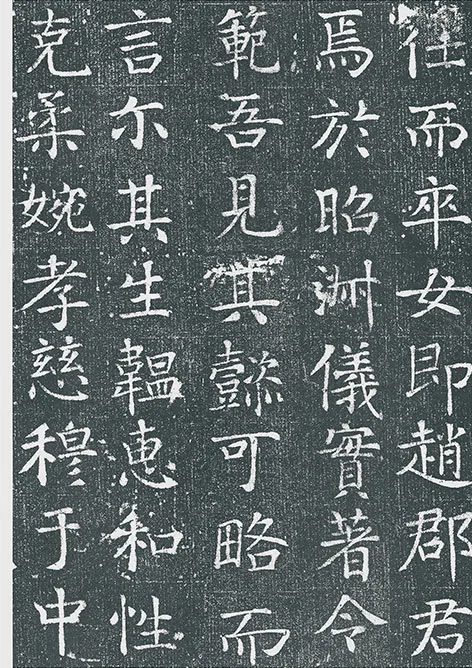 往而卒女即趙郡君
焉於昭渊儀實著令
範吾見其懿可略而
言尒其生韞恵和性
克柔婉孝慈穆于中